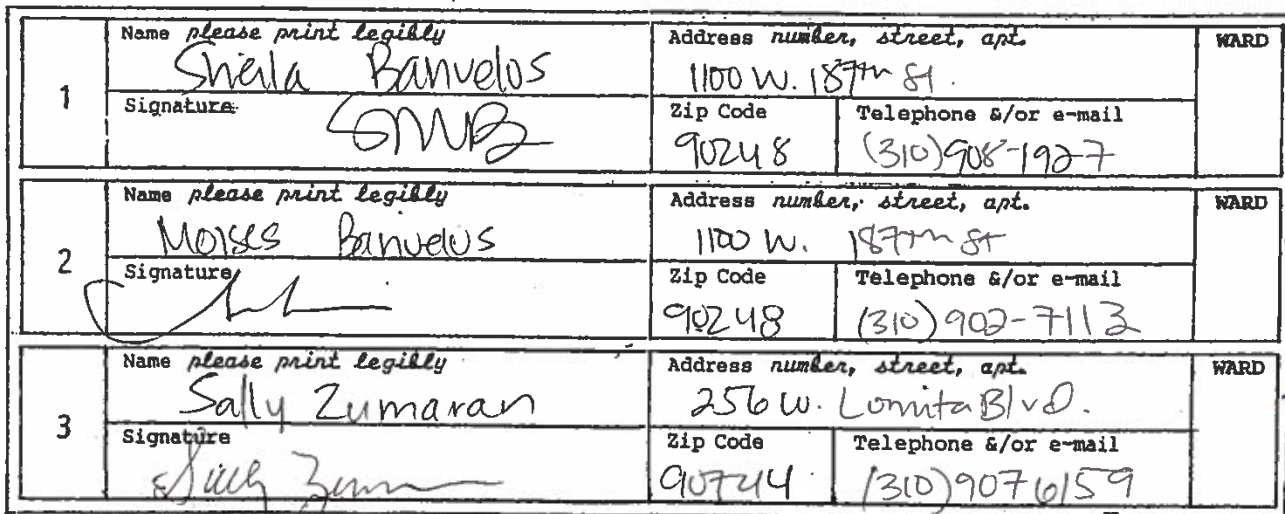 1
Name please print legibly
Sheila Banuelos
Address number, street, apt.
1100 W. 187th St.
WARD
Signature
Zip Code
90248
Telephone &/or e-mail
(310)908-1927
2
Name please print legibly
Moises Banuelos
Address number, street, apt.
1100 W. 187th St
WARD
Signature
Zip Code
90248
Telephone &/or e-mail
(310)902-7113
3
Name please print legibly
Sally Zumaran
Address number, street, apt.
256 W. Lomita Blvd.
WARD
Signature
Zip Code
90744
Telephone &/or e-mail
(310)9076159